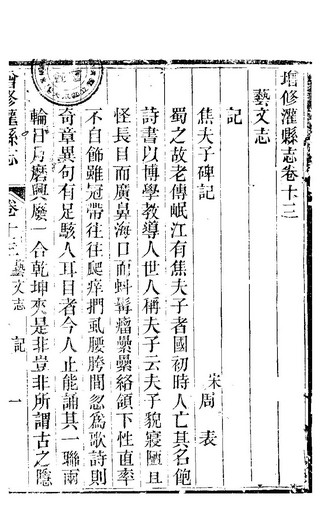 增修灌縣志卷十三
藝文志
記
焦夫子碑記
宋周表
蜀之故老傳岷江有焦夫子者國初時人亡其名飽
詩書以博學教導人世人稱夫子云夫子貌寢陋且
怪長目而廣鼻海口而虯髯瘤纍纍絡頷下性直率
不自飾雖冠帶往往爬痒捫虱腰胯間忽為歌詩則
奇章異句有足駭人耳目者今人止能誦其一聯兩
輪日月磨興廢一合乾坤夾是非豈非所謂古之隱
增修灌縣志
卷十三
藝文志
記
一